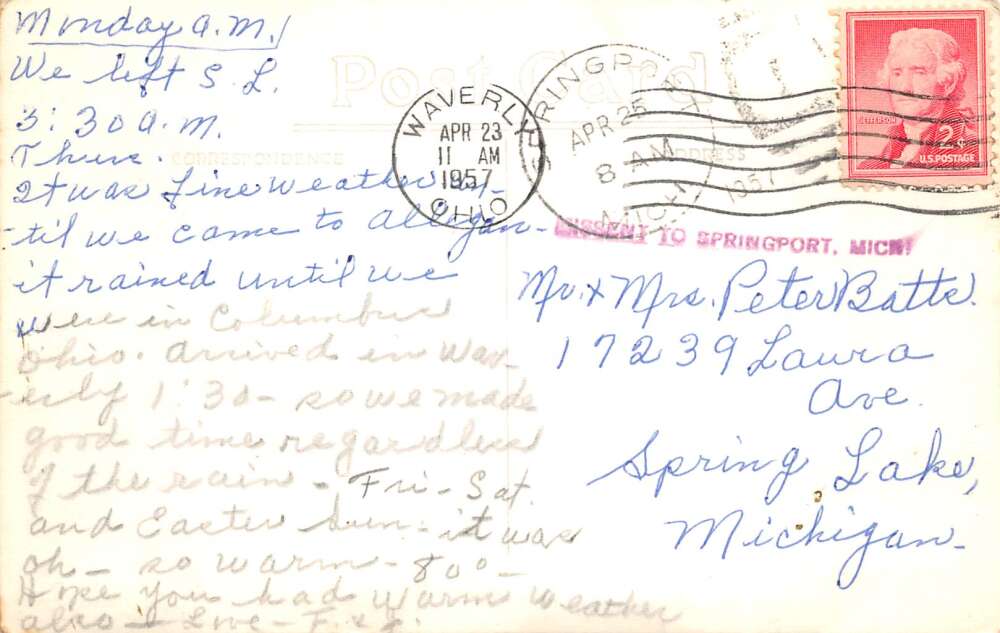 Monday a.m.
We left S.L.
3:30 a.m.
Thurs.
It was fine weather un-
-til we came to Allegan-
it rained until we
were in Columbus
Ohio. Arrived in Wav-
-erly 1:30- so we made
good time regardless
of the rain - Fri - Sat.
and Easter Sun - it was
oh - so warm - 80° -
Hope you had warm weather
also - Love - F. & G.
Post Card
CORRESPONDENCE
ADDRESS
WAVERLY
APR 23
11 AM
1957
OHIO
SPRINGPORT
APR 25
8 AM
1957
MICH
JEFFERSON
2¢
U.S. POSTAGE
MISSENT TO SPRINGPORT, MICH
Mr. & Mrs. Peter Batts.
17239 Laura
Ave.
Spring Lake,
Michigan-